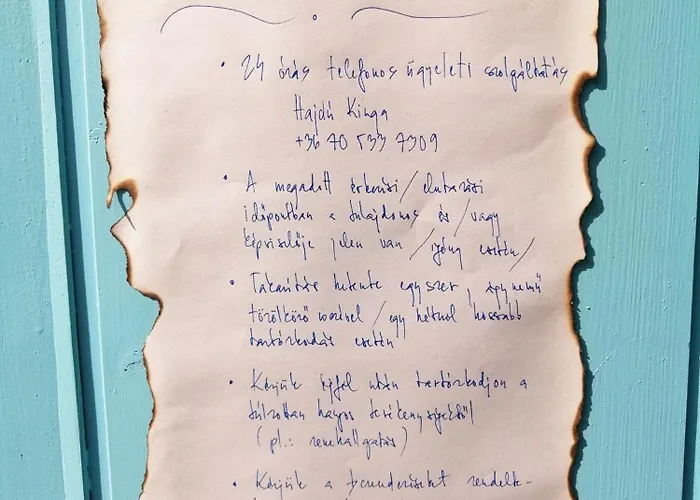 • 24 órás telefonos ügyeleti szolgáltatás
Hajdú Kinga
+36 70 533 7309
• A megadott érkezési / elutazási
időpontban a tulajdonos és / vagy
képviselője jelen van / igény esetén /
• Takarítás hetente egyszer, ágynemű
törölköző cserével / egy hétnél hosszabb
tartózkodás esetén
• Kérjük éjfél után tartózkodjon a
túlzottan hangos tevékenységektől
(pl.: zenehallgatás)
• Kérjük a berendezéseket rendelte-